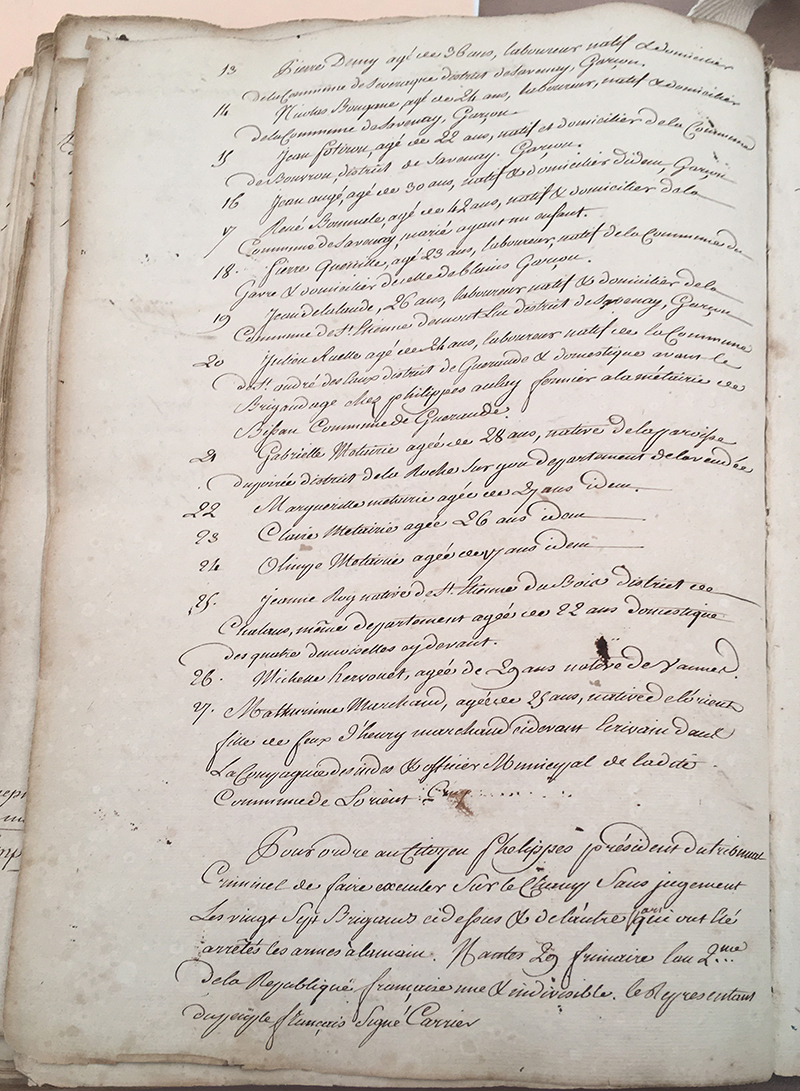 13 Pierre Demy agé de 36 ans, laboureur natif & domicilier
de la Commune de Severague district de Savenay, Garçon.
14 Nicolas Bougane, agé de 24 ans, laboureur, natif & domicilier
de la Commune de Savenay, Garçon
15 Jean agé de 22 ans, natif et domicilier de la Commune
de Bouvron, district de Savenay. Garçon.
16 Jean augé, agé de 30 ans, natif & domicilier d'idem, Garçon
17 René agé de 42 ans, natif & domicilier de la
Commune de Savenay, marié ayant un enfant.
18. Pierre agé 23 ans, laboureur, natif de la Commune du
Gavre & domicilier de celle de blain Garçon.
19 Jean delalande, 26 ans, laboureur natif & domicilier de la
Commune de St. Etienne de mont Luc district de Savenay, Garçon
20 Julien Ruelle agé de 24 ans, laboureur natif de la Commune
de St. andré des Eaux district de Guerande & domestique avant le
Brigandage chez philippes aulay fermier a la métairie de
Commune de Guerande.
21 Gabrielle Metairie agée de 28 ans, native de la paroisse
du poirée district de la Roche Sur yon departement de la vendée
22 Marguerille metairie agée de 27 ans idem.
23 Claire Metairie agée 26 ans idem
24 Olimpe Metairie agée de 17 ans idem
25. Jeanne Roy native de St. Etienne du Bois district de
Chalans, même departement agée de 22 ans domestique
des quatre demoiselles cy devant.
26. Michelle hervouet, agée de 29 ans native de vannes.
27. Mathurinne Marchand, agée de 25 ans, native de l'orient
fille de feux d'henry marchand cidevant Ecrivain dans
La Compagnie des indes & officier Municipal de ladite
Commune de Lorient
Pour ordre au Citoyen Phelippes président du tribunal
Criminel de faire executer Sur le Champ Sans jugement
Les vingt Sept Brigands cidessus & de l'autre part qui ont été
arrêtés les armes à la main. Nantes 29 frimaire l'an 2me
de la Republique française une & indivisible. le Representant
du peuple françois Signé Carrier